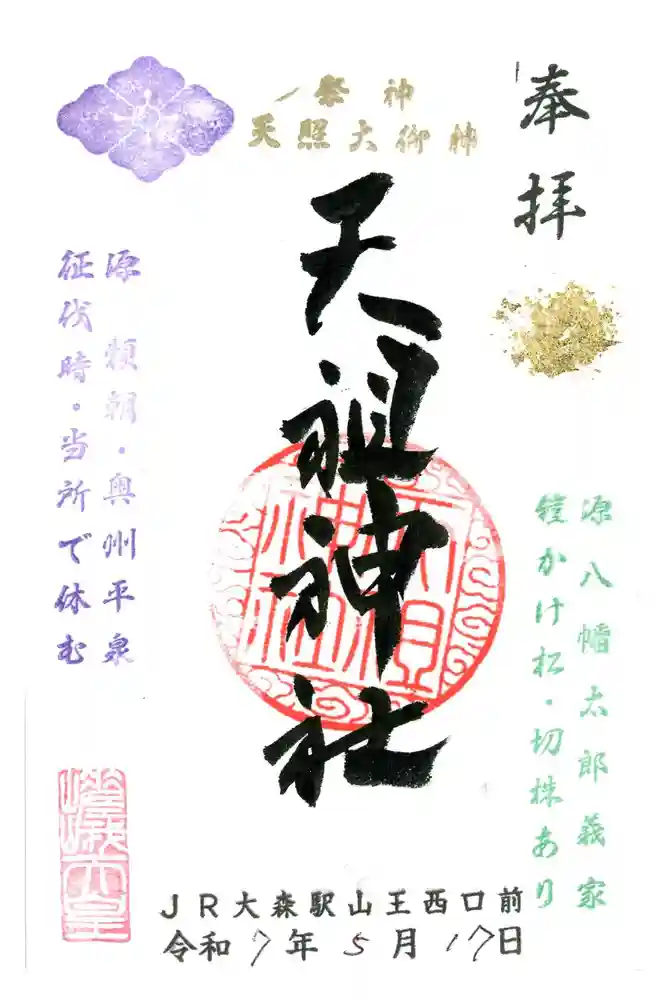 奉拝
祭神
天照大御神
天祖神社
天祖神社
源八幡太郎義家
鎧かけ松・切株あり
源 頼朝・奥州平泉
征伐時。当所で休む
嵯峨天皇
JR大森駅山王西口前
令和7年5月17日